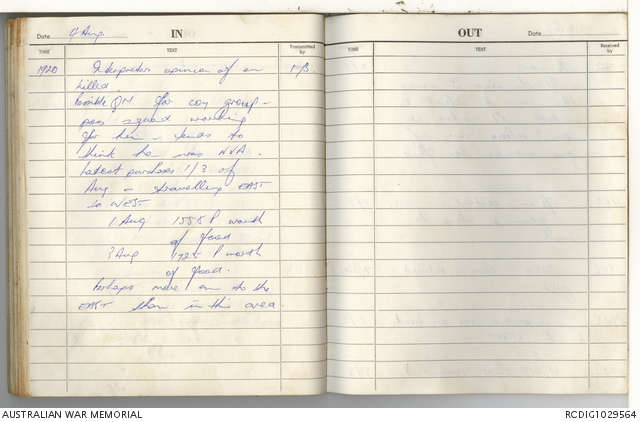 IN
Date 4 Aug
TIME TEXT Transmitted by
1920 Interpreters opinion of en 1 FB.
killed.
Possible QM for coy group -
poss squad working
for him - tends to
think he was NVA.
Latest purchases 1/3 of
Aug - travelling EAST
to WEST
1 Aug 1555 P worth
of food
3 Aug 1725 P worth
of food.
Perhaps more en to the
EAST than in this area.
OUT
Date
TIME TEXT Received by
AUSTRALIAN WAR MEMORIAL
RCDIG1029564